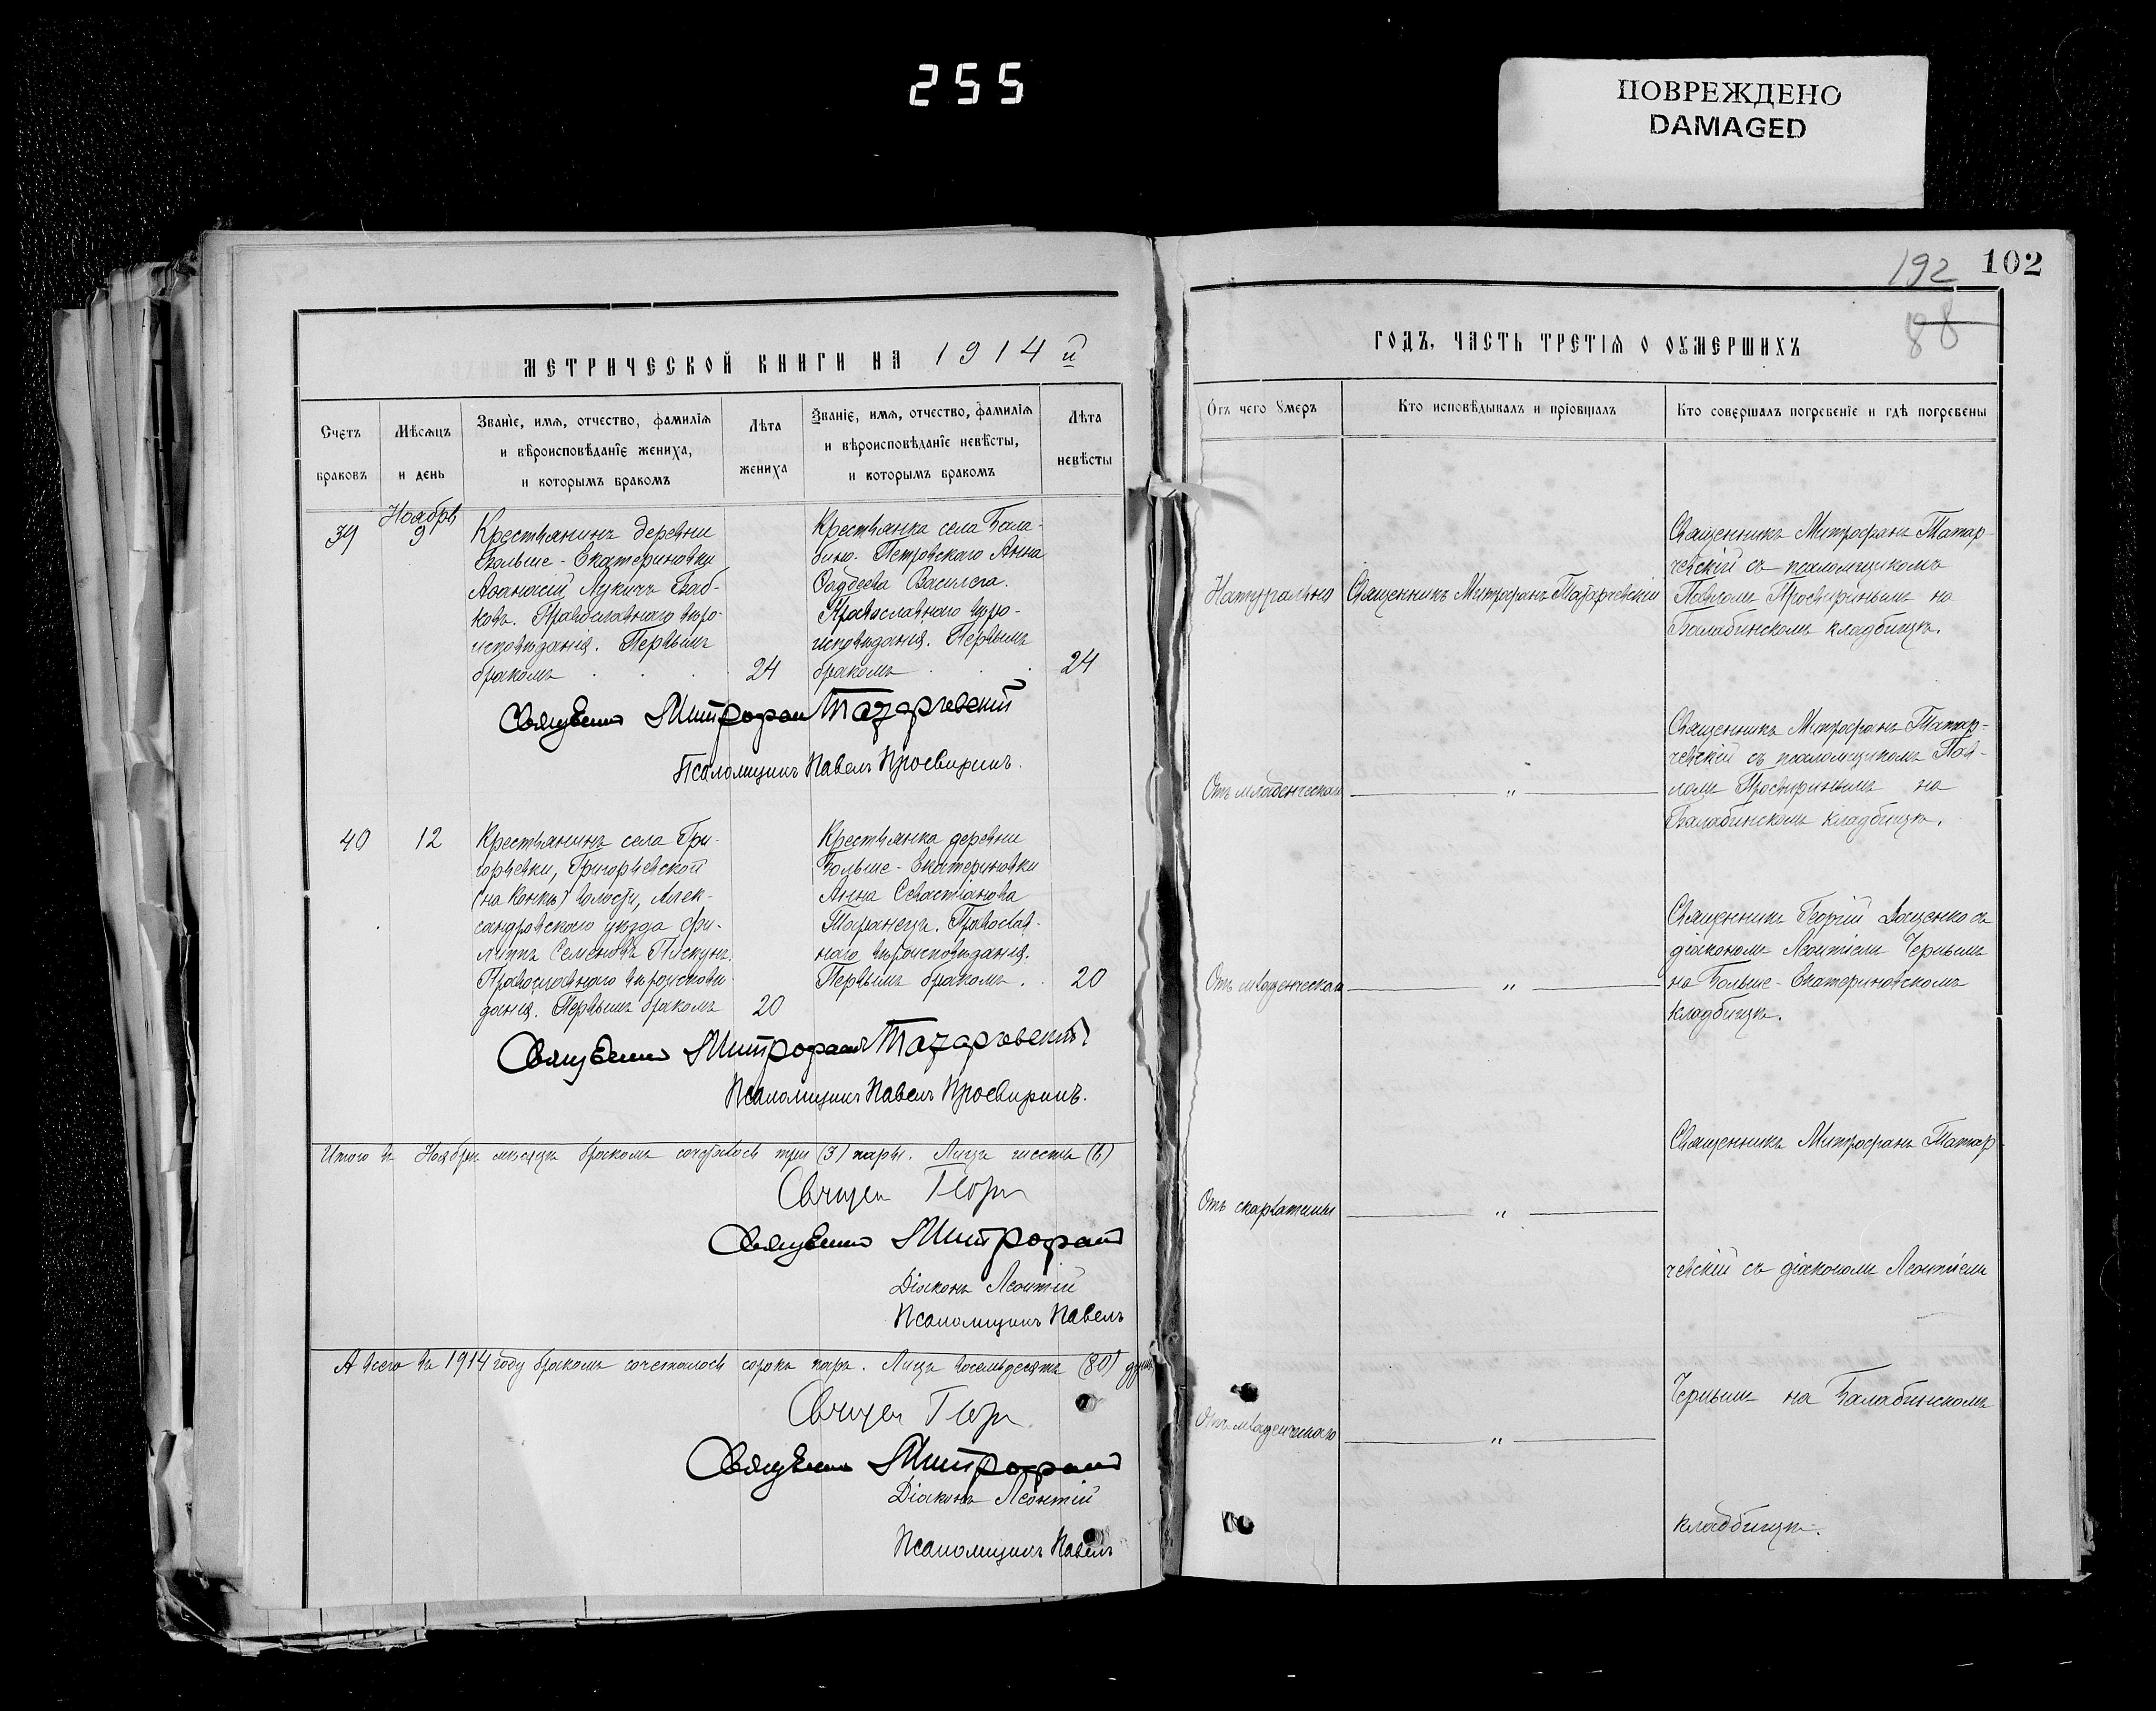 255
ПОВРЕЖДЕНО
DAMAGED
МЕТРИЧЕСКОЙ КНИГИ НА 1914 й
Счетъ браковъ
Мѣсяцъ и день
Званіе, имя, отчество, фамилія
и вѣроисповѣданіе жениха,
и которымъ бракомъ
Лѣта жениха
Званіе, имя, отчество, фамилія
и вѣроисповѣданіе невѣсты,
и которымъ бракомъ
Лѣта невѣсты
39
Ноябрь
9
Крестьянинъ деревни
Больше-Екатериновки
Аѳанасій Лукичъ Баб-
ковъ. Православнаго вѣро-
исповѣданія. Первымъ
бракомъ
24
Крестьянка села Бала-
бино-Петровскаго Анна
Ѳаддеева Василега.
Православнаго вѣро-
исповѣданія. Первымъ
бракомъ
24
Священникъ Митрофанъ Татарчевскій
Псаломщикъ Павелъ Просвиринъ.
40
12
Крестьянинъ села Гри-
горьевки, Григорьевской
(на Конкѣ) волости, Алек-
сандровскаго уѣзда Фи-
липпъ Семеновъ Пискунъ.
Православнаго вѣроисповѣ-
данія. Первымъ бракомъ
20
Крестьянка деревни
Больше-Екатериновки
Анна Севастіанова
Православ-
наго вѣроисповѣданія.
Первымъ бракомъ.
20
Священникъ Митрофанъ Татарчевскій
Псаломщикъ Павелъ Просвиринъ.
Итого въ Ноябрѣ мѣсяцѣ бракомъ сочеталось три (3) пары. Лицъ шесть (6)
Священ Георг
Священникъ Митрофанъ
Діаконъ Леонтій
Псаломщикъ Павелъ
А всего въ 1914 году бракомъ сочеталось сорокъ паръ. Лицъ восемьдесятъ (80) душъ
Священ Георг
Священникъ Митрофанъ
Діаконъ Леонтій
Псаломщикъ Павелъ
192
102
88
ГОДЪ, ЧАСТЬ ТРЕТІЯ О ОУМЕРШИХЪ
Отъ чего умеръ
Кто исповѣдывалъ и пріобщалъ
Кто совершалъ погребеніе и гдѣ погребены
Натурально
Священникъ Митрофанъ Татарчевскій
Священникъ Митрофанъ Татар-
чевскій съ псаломщикомъ
Павломъ Просвиринымъ на
Балабинскомъ кладбищѣ.
Отъ младенческой
"
Священникъ Митрофанъ Татар-
чевскій съ псаломщикомъ Пав-
ломъ Просвиринымъ на
Балабинскомъ кладбищѣ.
Отъ младенческой
"
Священникъ Георгій Доценко съ
діакономъ Леонтіемъ Чернымъ
на Больше-Екатериновскомъ
кладбищѣ.
Отъ скарлатины
"
Священникъ Митрофанъ Татар-
чевскій съ діакономъ Леонтіемъ
Отъ младенческаго
"
Чернымъ на Балабинскомъ
кладбищѣ.